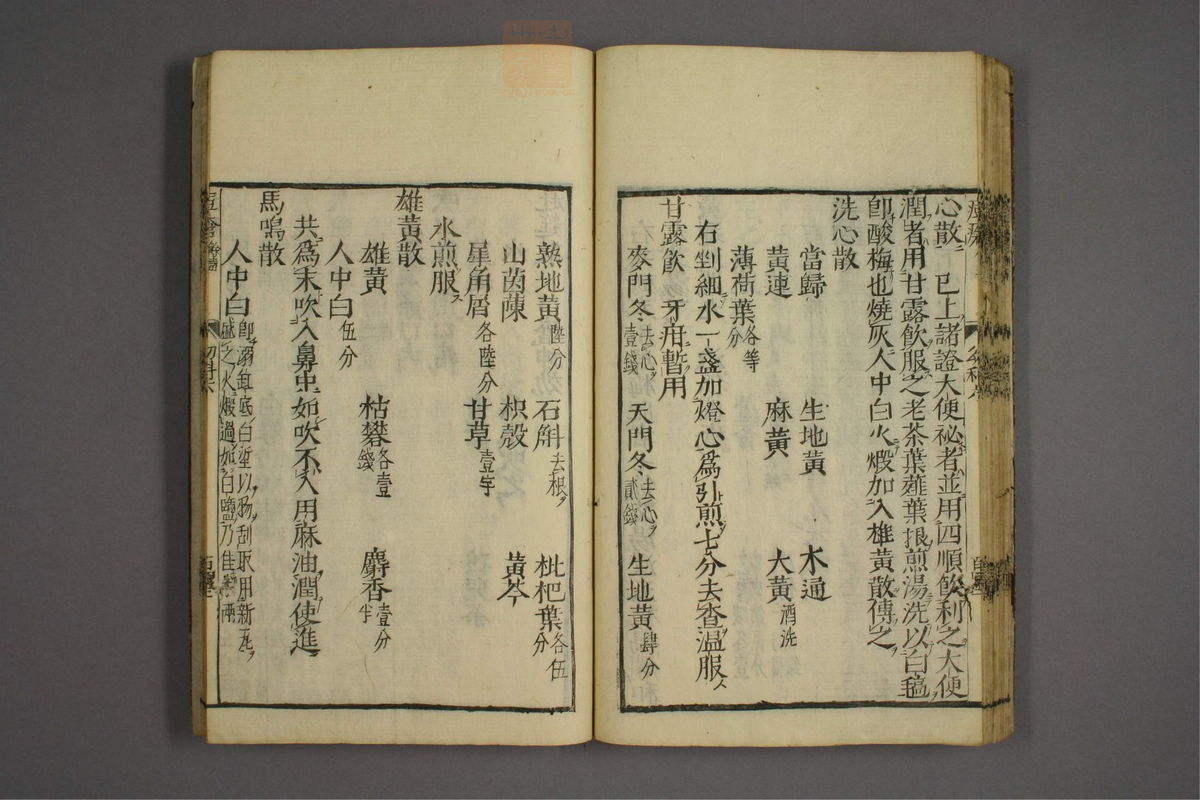 心散 已上諸證大便祕者並用四順飮利之大便
潤者用甘露飮服之老茶葉薤葉根煎湯洗以白
卽酸梅也燒灰人中白火煆加入雄黃散傅之
洗心散
當歸 生地黃 木通
黃連 麻黃 大黃酒洗
薄荷葉各等分
右剉細水一盞加燈心爲引煎七分去查溫服
甘露飮 牙疳暫用
麥門冬去心壹錢 天門冬去心貳錢 生地黃肆分
熟地黃陸分 石斛去根 枇杷葉各伍分
山茵蔯 枳殼 黃芩
犀角屑各陸分 甘草壹字
水煎服
雄黃散
雄黃 枯礬各壹錢 麝香壹分半
人中白伍分
共爲末吹入鼻中如吹不入用麻油潤使進
馬鳴散
人中白卽溺缸底白垽以物刮取用新瓦
盛之火煆過如白鹽乃佳半兩